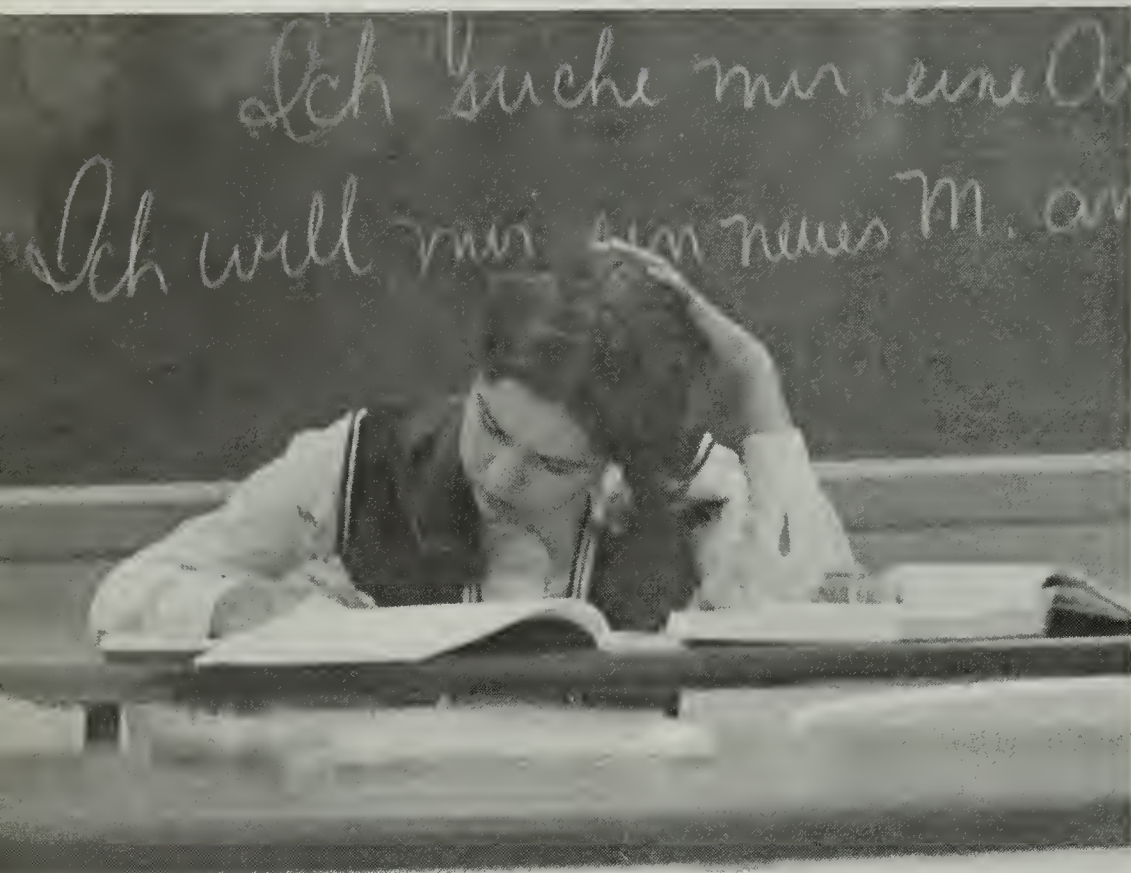 Ich suche mir eine
Ich will mir ein neues M.